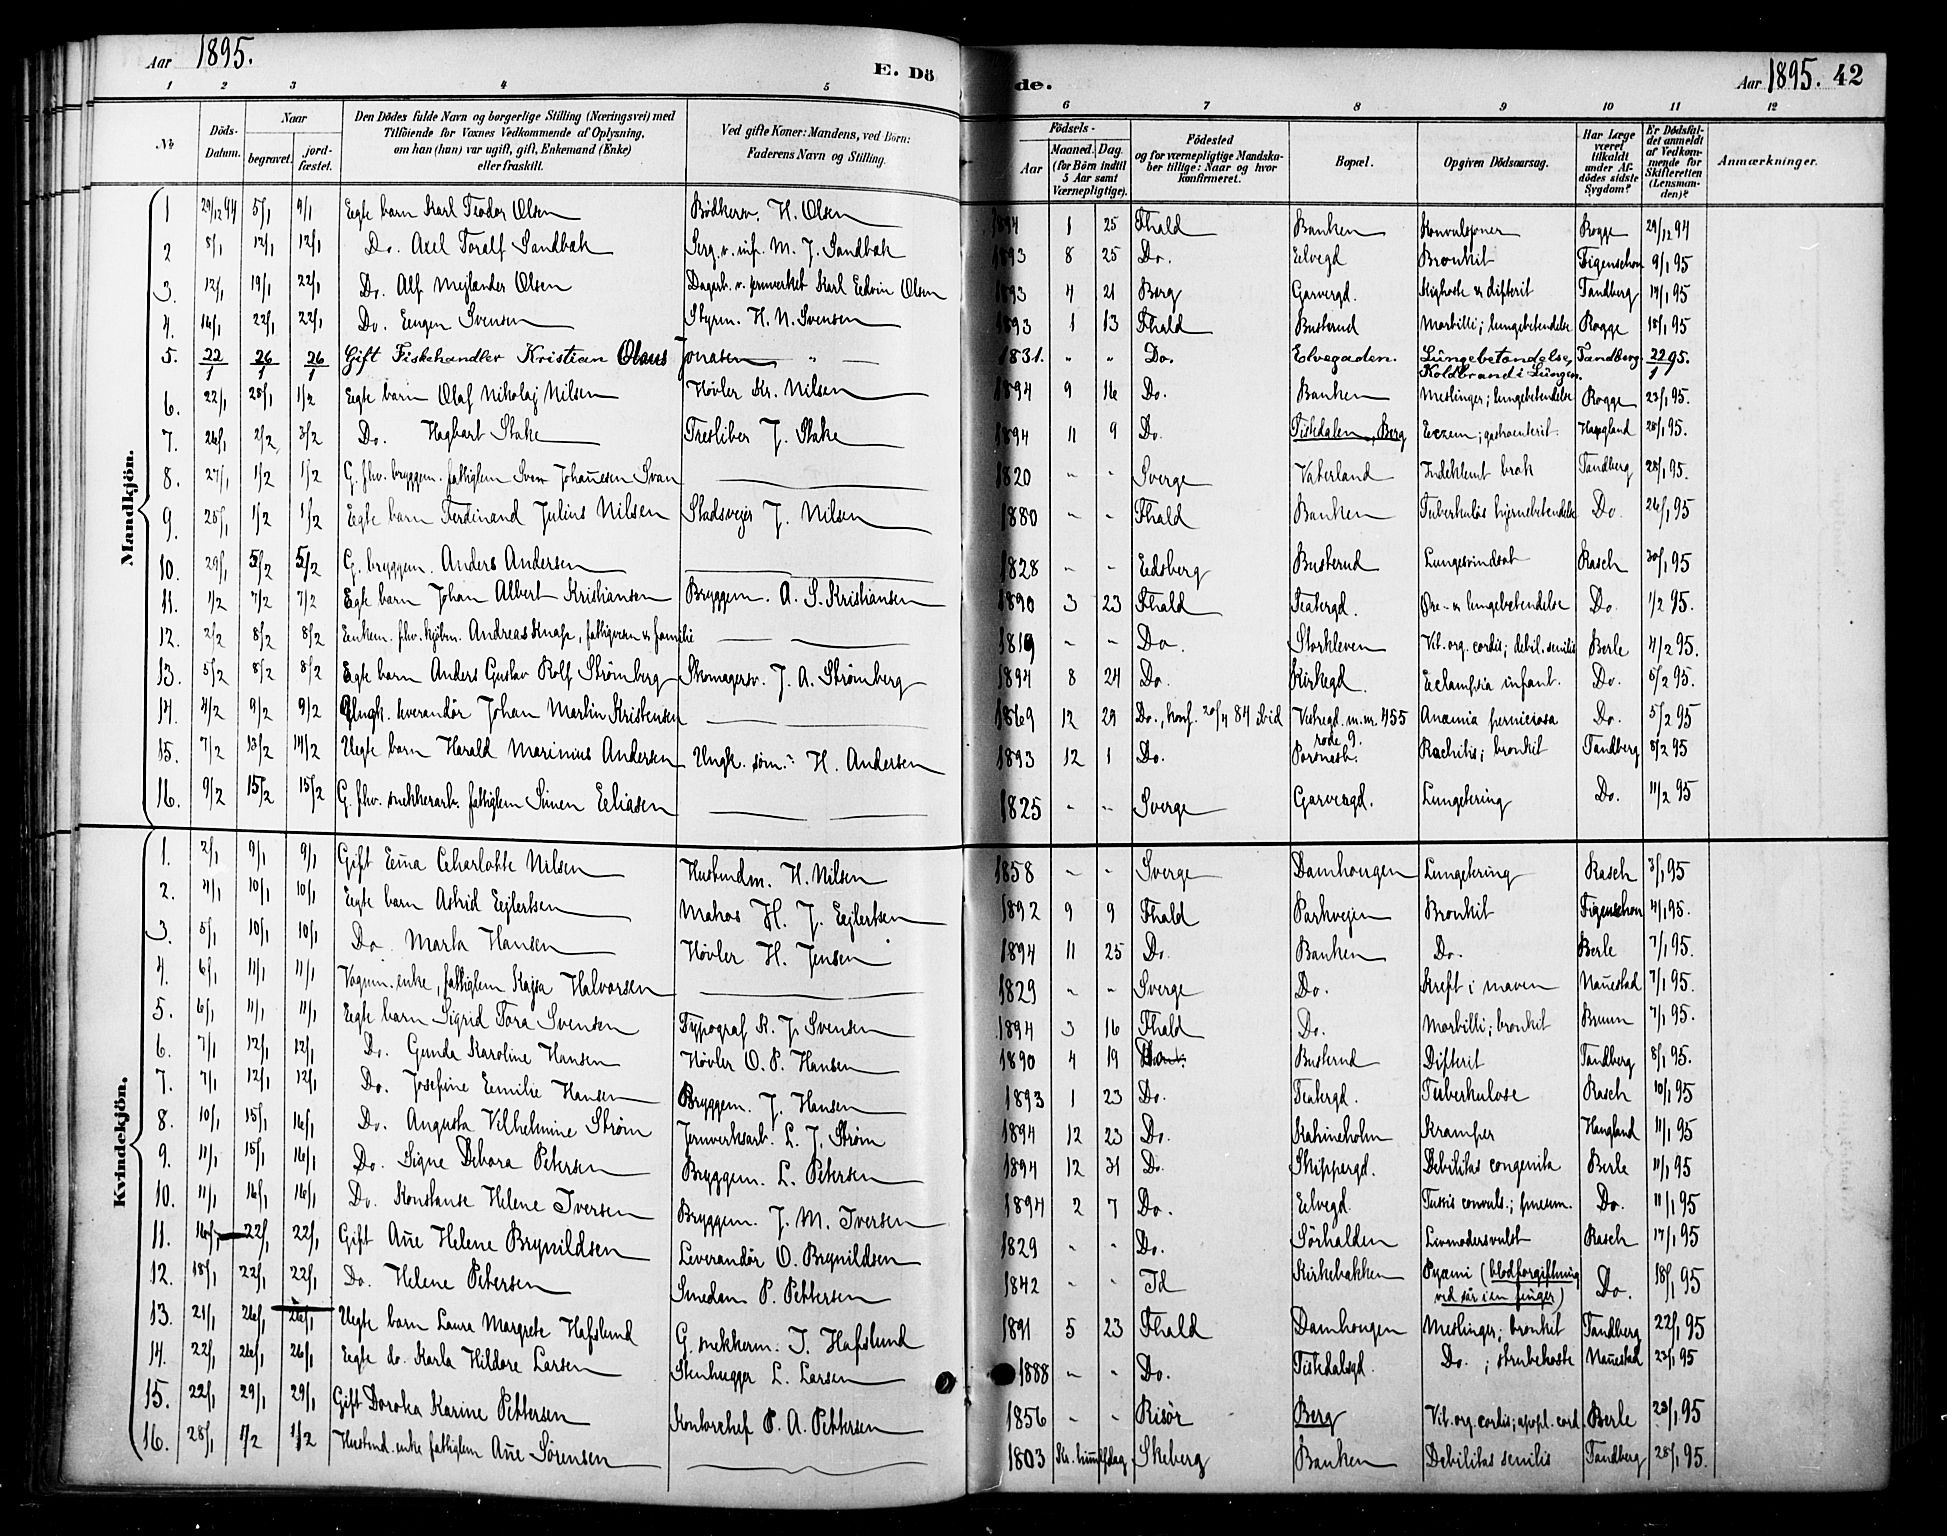 Aar 1895. E. Dö
de. Aar 1895. 42
1 2 3 4 5 6 7 8 9 10 11 12
No. Döds-Datum. Naar begravet. jordfæstet. Den Dödes fulde Navn og borgerlige Stilling (Næringsvei) med Tilföiende for Voxnes Vedkommende af Oplysning, om han (hun) var ugift, gift, Enkemand (Enke) eller fraskilt. Ved gifte Koner: Mandens, ved Börn: Faderens Navn og Stilling. Födsels- Aar Maaned. Dag. (for Börn indtil 5 Aar samt Værnepligtige). Födested og for værnepligtige Mandskaber tillige: Naar og hvor konfirmeret. Bopæl. Opgiven Dödsaarsag. Har Læge været tilkaldt under Afdödes sidste Sygdom? Er Dödsfaldet anmeldt af Vedkommende for Skifteretten (Lensmanden)? Anmærkninger.
Mandkjön.
1 29/12 94 5/1 9/1 Egte barn Karl Teodor Olsen Bödkersv. H. Olsen 1894 1 25 Fhald Banken Konvulsjoner Rogge 29/12 94
2 5/1 12/1 12/1 Do. Axel Toralf Sandbak Serg. v. inf. M. J. Sandbak 1893 8 25 Do. Elvegd Bronkit Figenschou 9/1 95
3. 12/1 19/1 22/1 Do. Alf Mejlander Olsen Dagarb. v. jernverket Karl Edvin Olsen 1893 4 21 Berg Garvergd. Kighoste & difterit Tandberg 14/1 95
4. 16/1 22/1 22/1 Do. Eugen Svensen Styrm. H. N. Svensen 1893 1 13 Fhald Busterud Morbilli; lungebetendelse Rogge 18/1 95
5. 22/1 26/1 26/1 Gift Fiskehandler Kristian Olaus Jonasen " 1831. " " Do. Elvegaden. Lungebetændelse, Koldbrand i Lungen. Tandberg. 22/1 95.
6. 22/1 28/1 1/2 Egte barn Olaf Nikolaj Nilsen Hövler Kr. Nilsen 1894 9 16 Do. Banken Meslinger; lungebetendelse Rogge 23/1 95.
7. 26/1 2/2 3/2 Do. Hagbart Stake Tresliber J. Stake 1894 11 9 Do. Tistedalen, Berg Eczem; gastroenterit. Haugland 28/1 95.
8. 27/1 1/2 1/2 G. fhv. bryggem. fattiglem Sven Johannesen Svan 1820 - - Sverge Vaterland Indeklemt brok Tandberg 28/1 95.
9. 25/1 1/2 1/2 Egte barn Ferdinand Julius Nilsen Stadsvejer J. Nilsen 1880 - - Fhald Banken Tuberkuløs hjernebetendelse Do. 26/1 95
10. 29/1 5/2 5/2 G. bryggem. Anders Andersen 1828 - - Eidsberg Busterud Lungesvindsot Rasch 30/1 95
11. 1/2 7/2 7/2 Egte barn Johan Albert Kristiansen Bryggem. A. S. Kristiansen 1890 3 23 Fhald Teatergd. Øre- & lungebetendelse Do. 1/2 95.
12. 2/2 8/2 8/2 Enkem. fhv. kjöbm. Andreas Knap, fattigvesn & familie 1819 - - Do. Storkleven Vit. org. cordis; debil. senilis Berle 4/2 95.
13. 5/2 8/2 8/2 Egte barn Anders Gustav Rolf Strömberg Skomagersv. J. A. Strömberg 1894 8 24 Do. Kirkegd. Eclampsia infant. Do. 5/2 95.
14. 4/2 9/2 9/2 Ungk. leverandör Johan Martin Kristensen 1869 12 29 Do., konf. 20/4 84 ibid Vestregd. m. nr. 455 rode 9. Anæmia perniciosa Do. 5/2 95
15. 7/2 13/2 14/2 Uegte barn Harald Marinius Andersen Ungk. söm. H. Andersen 1893 12 1 Do. Rachitis; bronkit Tandberg 8/2 95
16. 9/2 15/2 15/2 G. fhv. snekkerarb. fattiglem Simen Eliasen 1825 - - Sverge Garvergd. Lungetering Do. 11/2 95
Kvindekjön.
1. 2/1 9/1 9/1 Gift Ema Charlotte Nilsen Husbndm. H. Nilsen 1858 - - Sverge Damhougen Lungetering Rasch 3/1 95
2. 4/1 10/1 10/1 Egte barn Astrid Ejlertsen Matros H. J. Ejlertsen 1892 9 9 Fhald Parkvejen Bronkit Figenschou 4/1 95.
3. 5/1 10/1 10/1 Do. Marta Hansen Hövler H. Jensen 1894 11 25 Do. Banken Do. Berle 7/1 95.
4. 6/1 11/1 11/1 Vognm. enke, fattiglem Kajsa Halvorsen 1829 - - Sverge Do. Kreft i maven Nannestad 7/1 95.
5. 6/1 11/1 11/1 Egte barn Sigrid Tora Svensen Typograf K. J. Svensen 1894 3 16 Fhald Do. Morbilli; bronkit Bruun 7/1 95.
6. 7/1 12/1 12/1 Do. Gunda Karoline Hansen Hövler O. P. Hansen 1890 4 19 Busterud Difterit Tandberg 8/1 95.
7. 7/1 12/1 12/1 Do. Josefine Emilie Hansen Bryggem. J. Hansen 1893 1 23 Do. Teatergd. Tuberkulose Rasch 10/1 95
8. 10/1 15/1 16/1 Do. Augusta Vilhelmine Ström Jernverksarb. L. J. Ström 1894 12 23 Do. Katrineholm Kramper Haugland 11/1 95
9. 11/1 15/1 16/1 Do. Signe Debora Petersen Bryggem. L. Petersen 1894 12 31 Do. Skippergd. Debilitas congenita Berle 11/1 95
10. 11/1 16/1 16/1 Do. Konstanse Helene Iversen Bryggem. J. M. Iversen 1894 2 7 Do. Elvegd. Tussis convuls.; pneum. Do. 11/1 95
11. 16/1 22/1 22/1 Gift Ane Helene Brynildsen Leverandör O. Brynildsen 1829 - - Do. Sörhalden Livmodersvulst Rasch 17/1 95
12. 18/1 22/1 22/1 Do. Helene Petersen Smedm P. Pettersen 1842 - - Id Kirkebakken Pyæmi (blodforgiftning ved sår i en finger) Do. 18/1 95
13. 21/1 26/1 26/1 Uegte barn Laura Margrete Hafslund G. snekkerm. J. Hafslund 1891 5 23 Fhald Damhougen Meslinger; bronkit Tandberg 22/1 95
14. 22/1 26/1 26/1 Egte do. Karla Hildore Larsen Stenhugger L. Larsen 1888 - - Do. Tistedalsgd. Do.; strubehoste Nannestad 23/1 95
15. 22/1 29/1 29/1 Gift Dorotea Karine Pettersen Kontorchef P. A. Pettersen 1856 - - Risör Berg Vit. org. cordis; apopl. cord. Berle 23/1 95
16. 28/1 1/2 1/2 Husbnd. enke fattiglem Ane Sörensen 1803 Kr. himlfdag Skeberg Banken Debilitas senilis Tandberg 28/1 95.